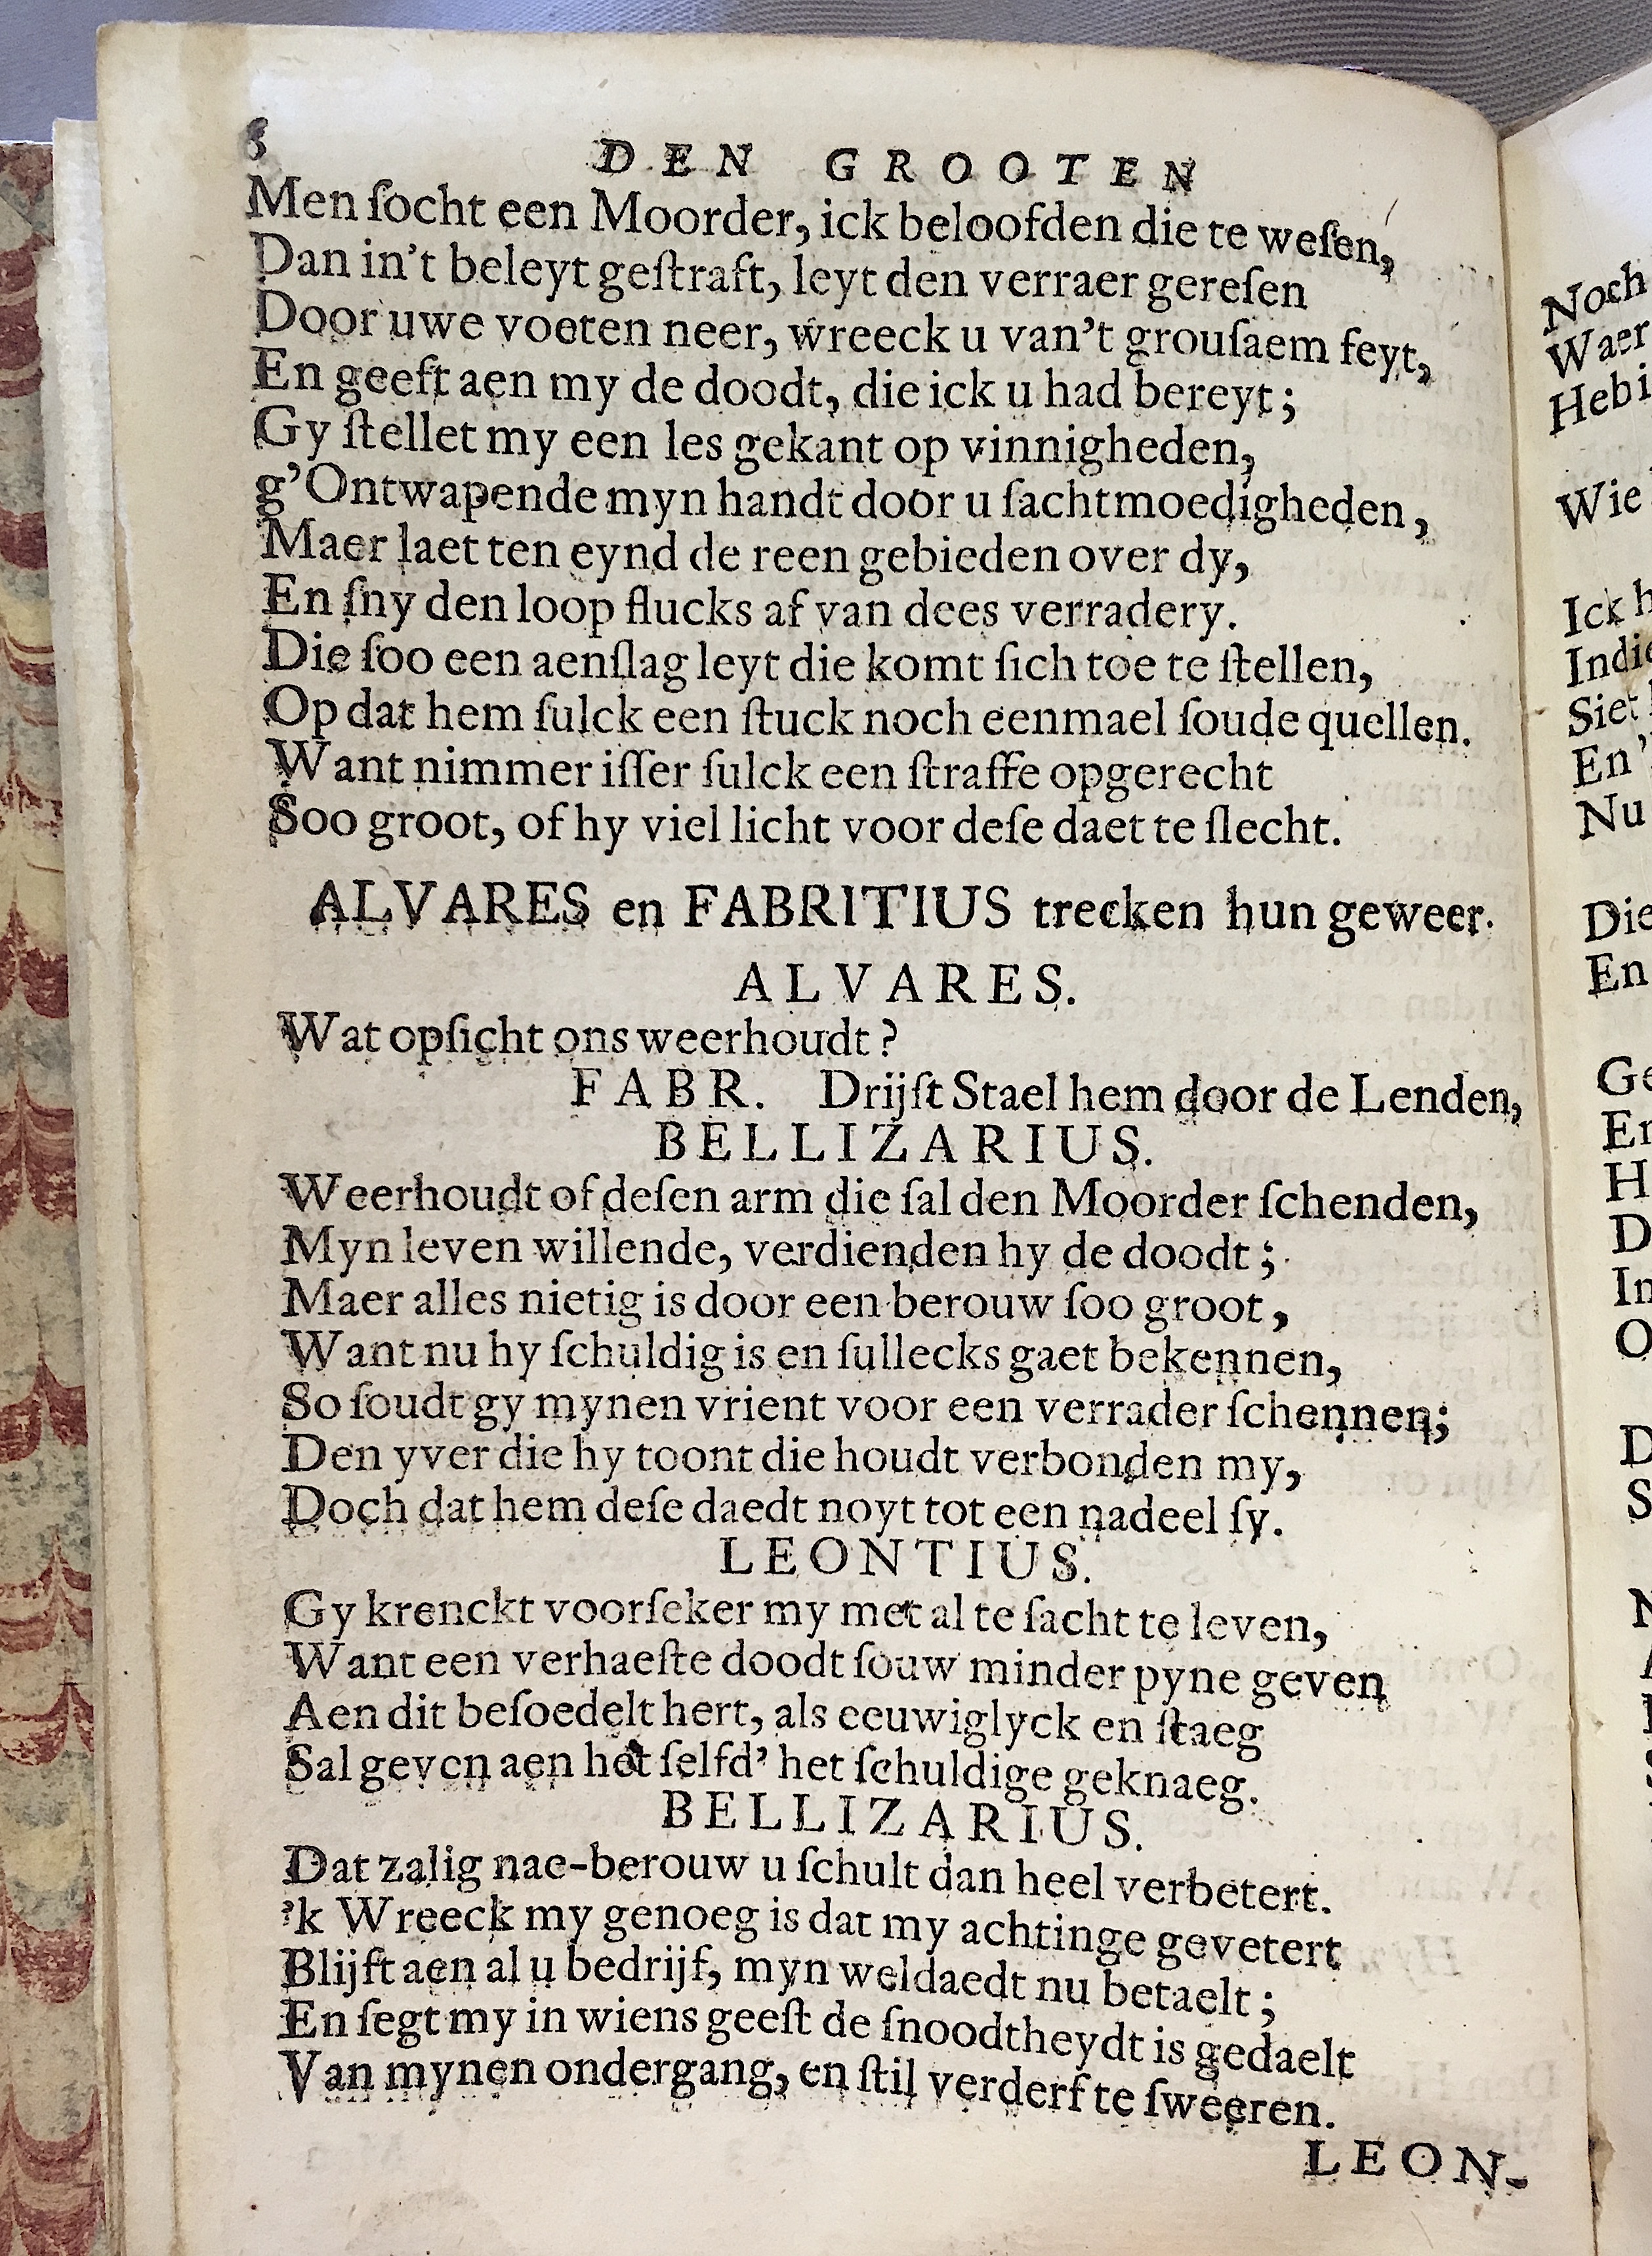 8 DEN GROOTEN
Men ſocht een Moorder, ick beloofden die te weſen,
Dan in't beleyt geſtraft, leyt den verraer gereſen
Door uwe voeten neer, wreeck u van't grouſaem feyt,
En geeft aen my de doodt, die ick u had bereyt;
Gy ſtellet my een les gekant op vinnigheden,
g'Ontwapende myn handt door u ſachtmoedigheden,
Maer laet ten eynd de reen gebieden over dy,
En ſny den loop flucks af van dees verradery.
Die ſoo een aenſlag leyt die komt ſich toe te ſtellen,
Op dat hem ſulck een ſtuck noch eenmael ſoude quellen.
Want nimmer iſſer ſulck een ſtraffe opgerecht
Soo groot, of hy viel licht voor deſe daet te ſlecht.
ALVARES en FABRITIUS trecken hun geweer.
ALVARES.
Wat opſicht ons weerhoudt?
FABR. Drijft Stael hem door de Lenden,
BELLIZARIUS.
Weerhoudt of deſen arm die ſal den Moorder ſchenden,
Myn leven willende, verdienden hy de doodt;
Maer alles nietig is door een berouw ſoo groot,
Want nu hy ſchuldig is en ſullecks gaet bekennen,
So ſoudt gy mynen vrient voor een verrader ſchennen;
Den yver die hy toont die houdt verbonden my,
Doch dat hem deſe daedt noyt tot een nadeel ſy.
LEONTIUS.
Gy krenckt voorſeker my met al te ſacht te leven,
Want een verhaeſte doodt ſouw minder pyne geven
Aen dit beſoedelt hert, als eeuwiglyck en ſtaeg
Sal geven aen het ſelfd' het ſchuldige geknaeg.
BELLIZARIUS.
Dat zalig nae-berouw u ſchult dan heel verbetert.
'k Wreeck my genoeg is dat my achtinge gevetert
Blijft aen al u bedrijf, myn weldaedt nu betaelt;
En ſegt my in wiens geeſt de ſnoodtheydt is gedaelt
Van mynen ondergang, en ſtil verderf te ſweeren.
LEON-
Noch
Waer
Heb i
Wie
Ick h
Indie
Siet
En
Nu
Die
En
Ge
En
H
D
In
O
D
S
N